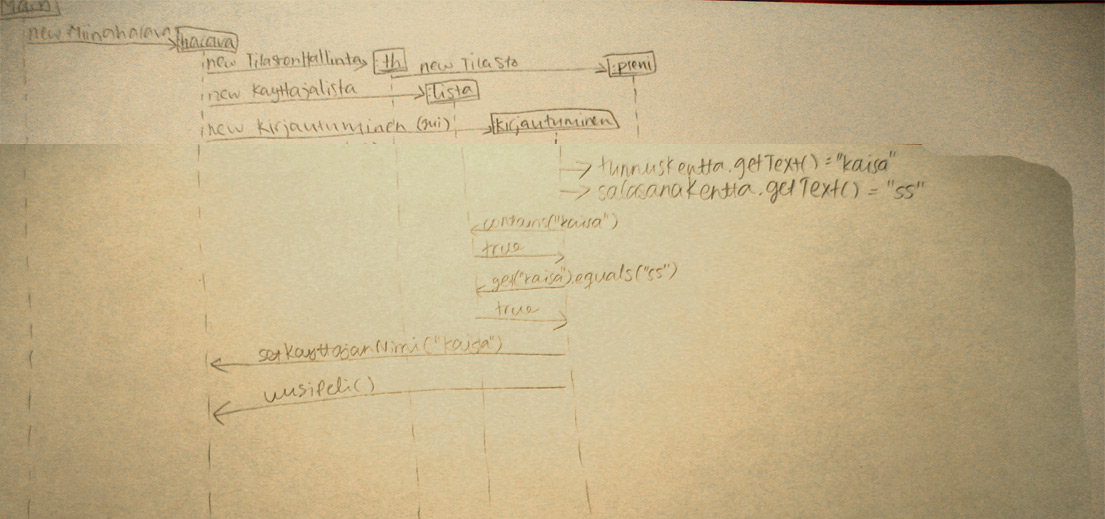 Main
new Miinaharava harava
new TilastonHallinta :th new Tilasto :pieni
new Kayttajalista :lista
new Kirjautuminen (gui) kirjautuminen
tunnuskentta.getText() = "kaisa"
salasanaKentta.getText() = "ss"
contains("kaisa")
true
get("kaisa").equals("ss")
true
setKayttajanNimi("kaisa")
uusiPeli()